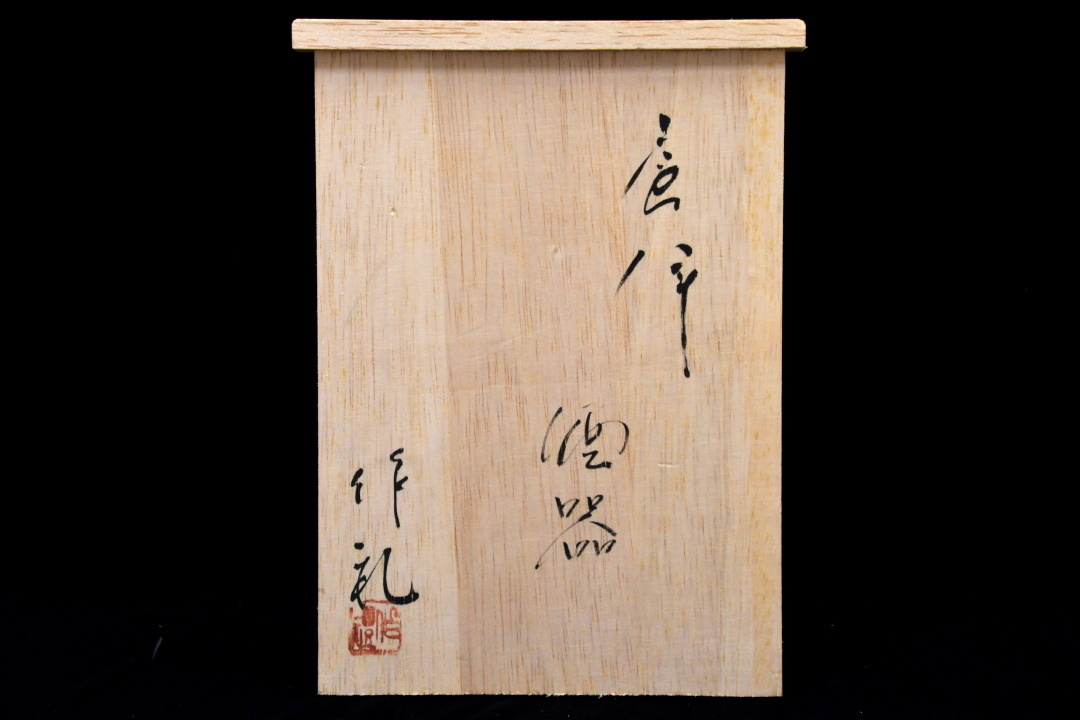 唐津
酒器
作礼